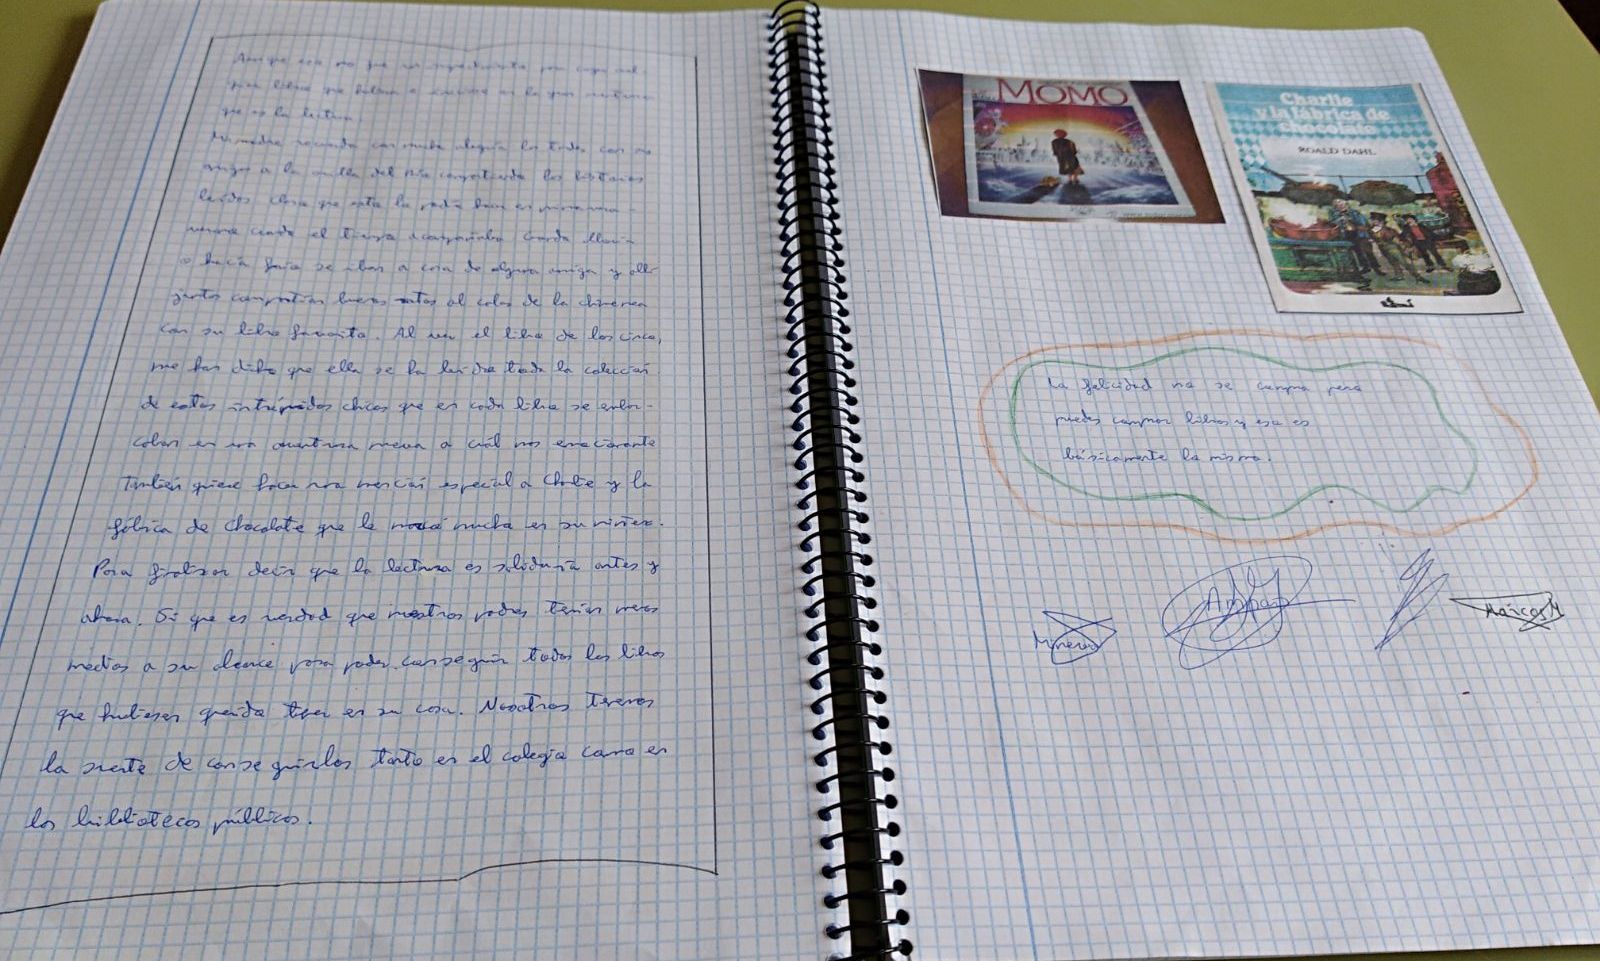 que es la lectura.
Mi madre recuerda con mucha alegría las tardes con sus
amigas a la orilla del Río compartiendo las historias
leídas. Claro que esto lo podía hacer en primavera-
verano cuando el tiempo acompañaba. Cuando llovía
o hacía frío se iban a casa de alguna amiga y allí
juntas compartían buenos ratos al calor de la chimenea
con su libro favorito. Al ver el libro de los cinco,
me ha dicho que ella se ha leído toda la colección
de estos intrépidos chicos que en cada libro se embar-
caban en una aventura nueva a cuál más emocionante
También quiere hacer una mención especial a Charlie y la
fábrica de chocolate que le marcó mucho en su niñez.
Para finalizar decir que la lectura es sabiduría antes y
ahora. Si que es verdad que nuestros padres tenían menos
medios a su alcance para poder conseguir todos los libros
que hubiesen querido tener en su casa. Nosotros tenemos
la suerte de conseguirlos tanto en el colegio como en
las bibliotecas públicas.
MOMO
Charlie
y la fábrica de
chocolate
ROALD DAHL
La felicidad no se compra pero
puedes comprar libros y eso es
básicamente lo mismo.
Minerva
Marcos M